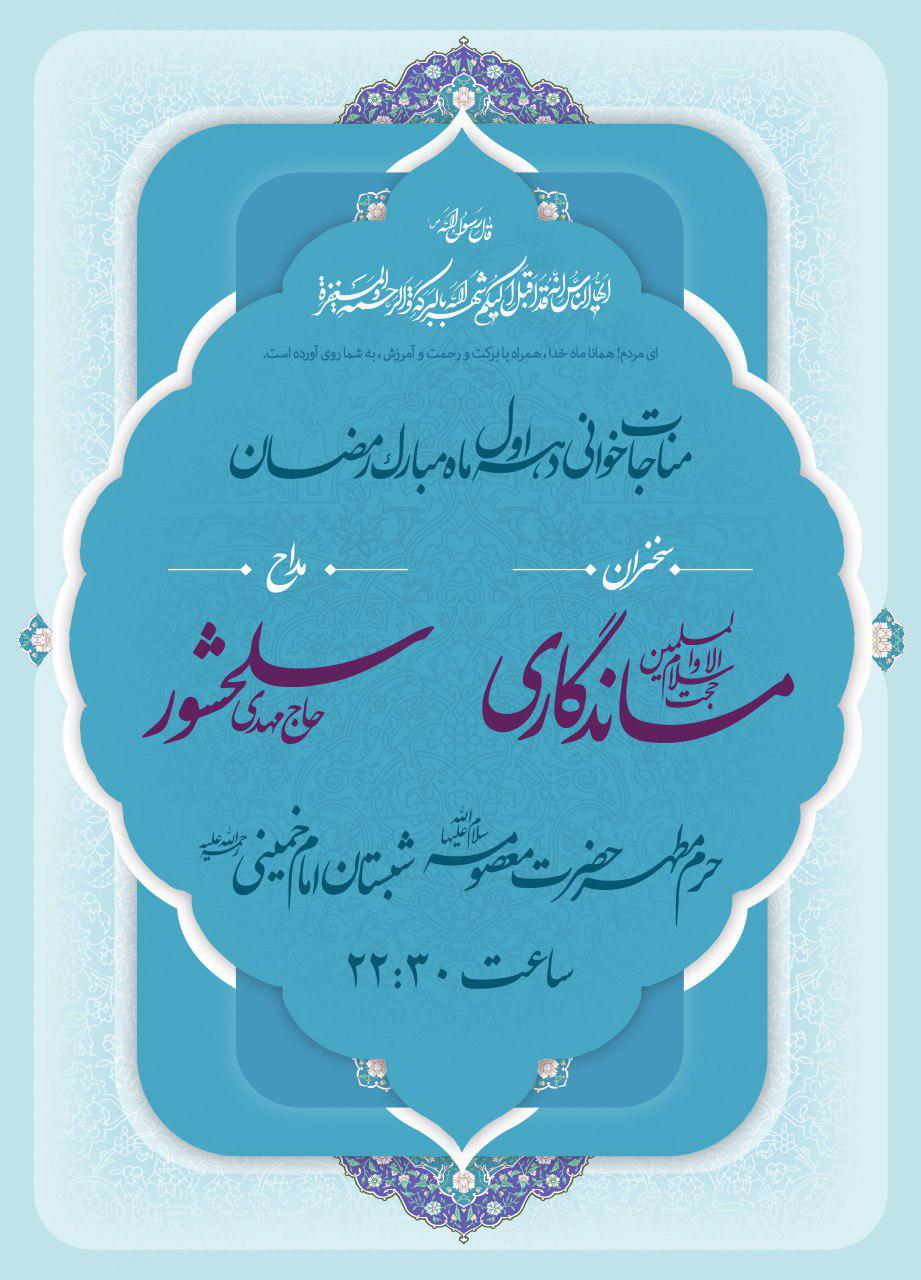 قال رسول الله ص
ایها الناس انه قد اقبل الیکم شهر الله بالبرکة و الرحمة و المغفرة
ای مردم! همانا ماه خدا ، همراه با برکت و رحمت و آمرزش ، به شما روی آورده است.
مناجات خوانی دهه اول ماه مبارک رمضان
سخنران
حجت الاسلام والمسلمین ماندگاری
مداح
حاج مهدی سلحشور
حرم مطهر حضرت معصومه سلام الله علیها شبستان امام خمینی رحمة الله علیه
ساعت ۲۲:۳۰